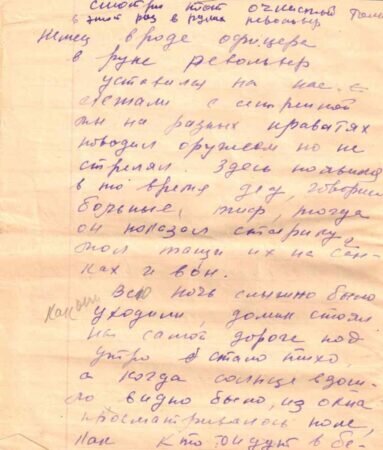 смотри тот очкастый только
в этот раз в руках револьвер
Немец вроде офицера
в руке револьвер
уставился на нас
лежали с сестренкой
мы на разных кроватях
поводил оружием но не
стрелял. Здесь появился
в то время дед, говорит
больные, тиф, тогда
он показал старику
мол тащи их на сан-
ках и вон.
Всю ночь слышно было
уходили, домик стоял
на самой дороге под
утро стало тихо,
а когда солнце
видно было, из окна
просматривалось поле,
как кто идут в бе-